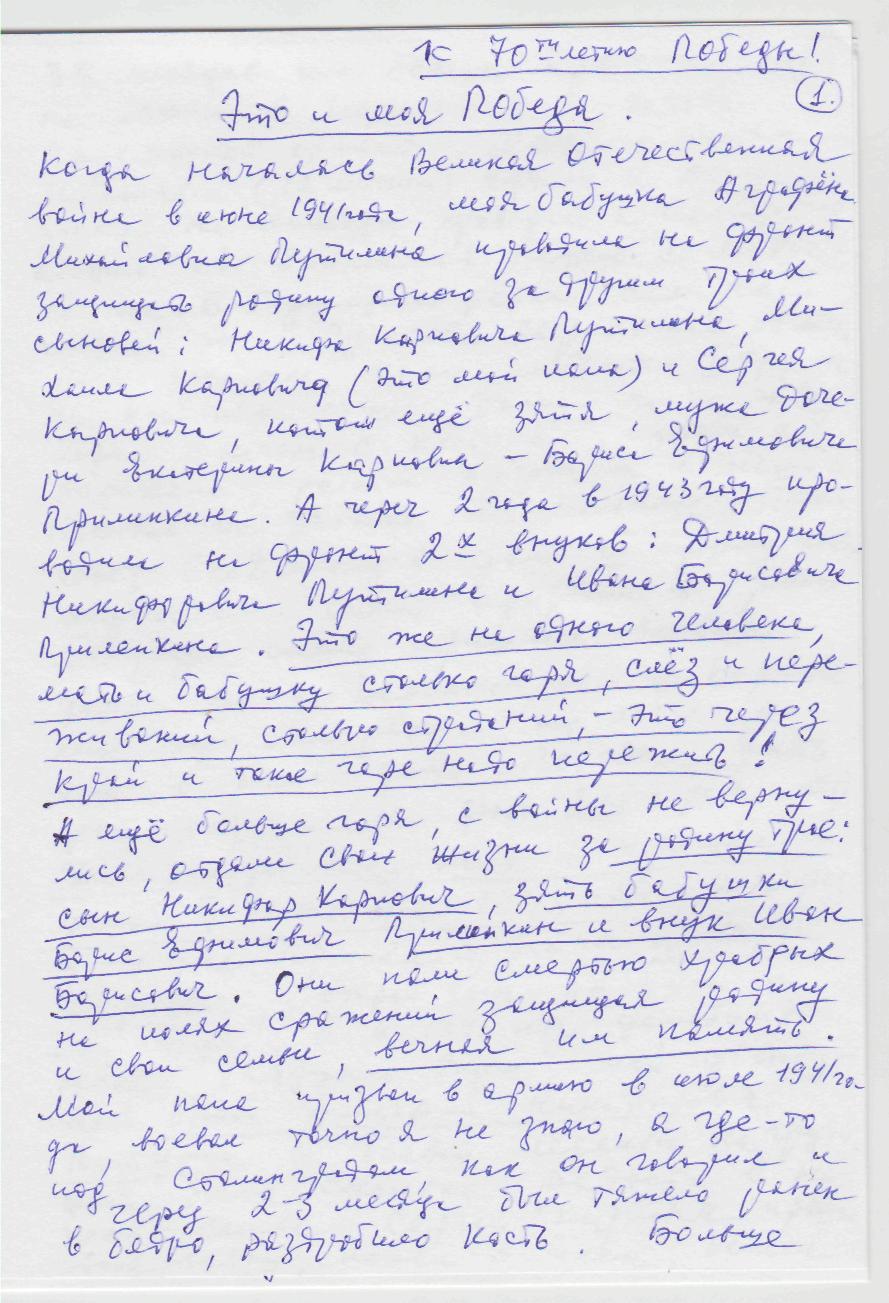 К 70ти летию Победы!
1.
Это и моя Победа.
Когда началась Великая Отечественная
война в июне 1941 года, моя бабушка Аграфёна
Михайловна Путилина проводила на фронт
защищать родину одного за другим троих
сыновей: Никифа Карповича Путилина, Ми-
хаила Карповича (это мой папа) и Сергея
Карповича, потом ещё зятя, мужа доче-
ри Екатерины Карповны - Бориса Ефимовича
Прилипкина. А через 2 года в 1943 году про-
водила на фронт 2х внуков: Дмитрия
Никифоровича Путилина и Ивана Борисовича
Прилипкина. Это же на одного человека,
мать и бабушку столько горя, слёз и пере-
живаний, столько страданий, - это через
край и такое горе надо пережить!
А ещё больше горя, с войны не верну-
лись, отдали свои жизни за родину трое:
сын Никифор Карпович, зять бабушки
Борис Ефимович Прилипкин и внук Иван
Борисович. Они пали смертью храбрых
на полях сражений защищая родину
и свои семьи, вечная им память.
Мой папа призван в армию в июле 1941 го-
да, воевал точно я не знаю, а где-то
под Сталинградом как он говорил и
через 2-3 месяца был тяжело ранен
в бедро, раздробило кость. Больше